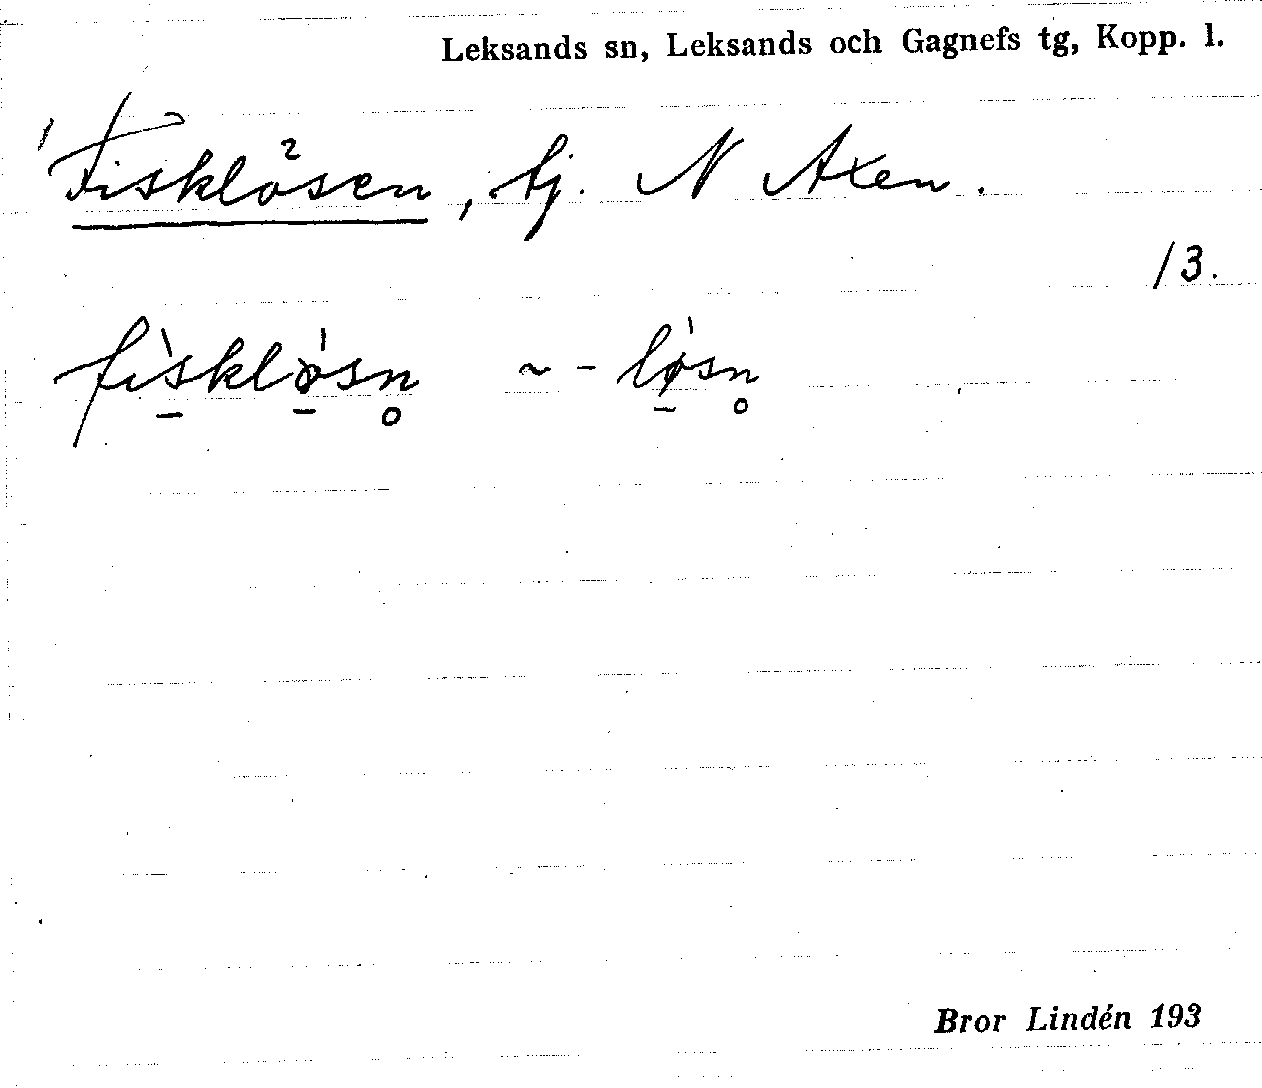 Leksands sn, Leksands och Gagnefs tg, Kopp. l.
Fisklösen, tj. N Axen.
13.
fi̠sklø̠sn̥ ~ -lø̠sn̥
Bror Lindén 193